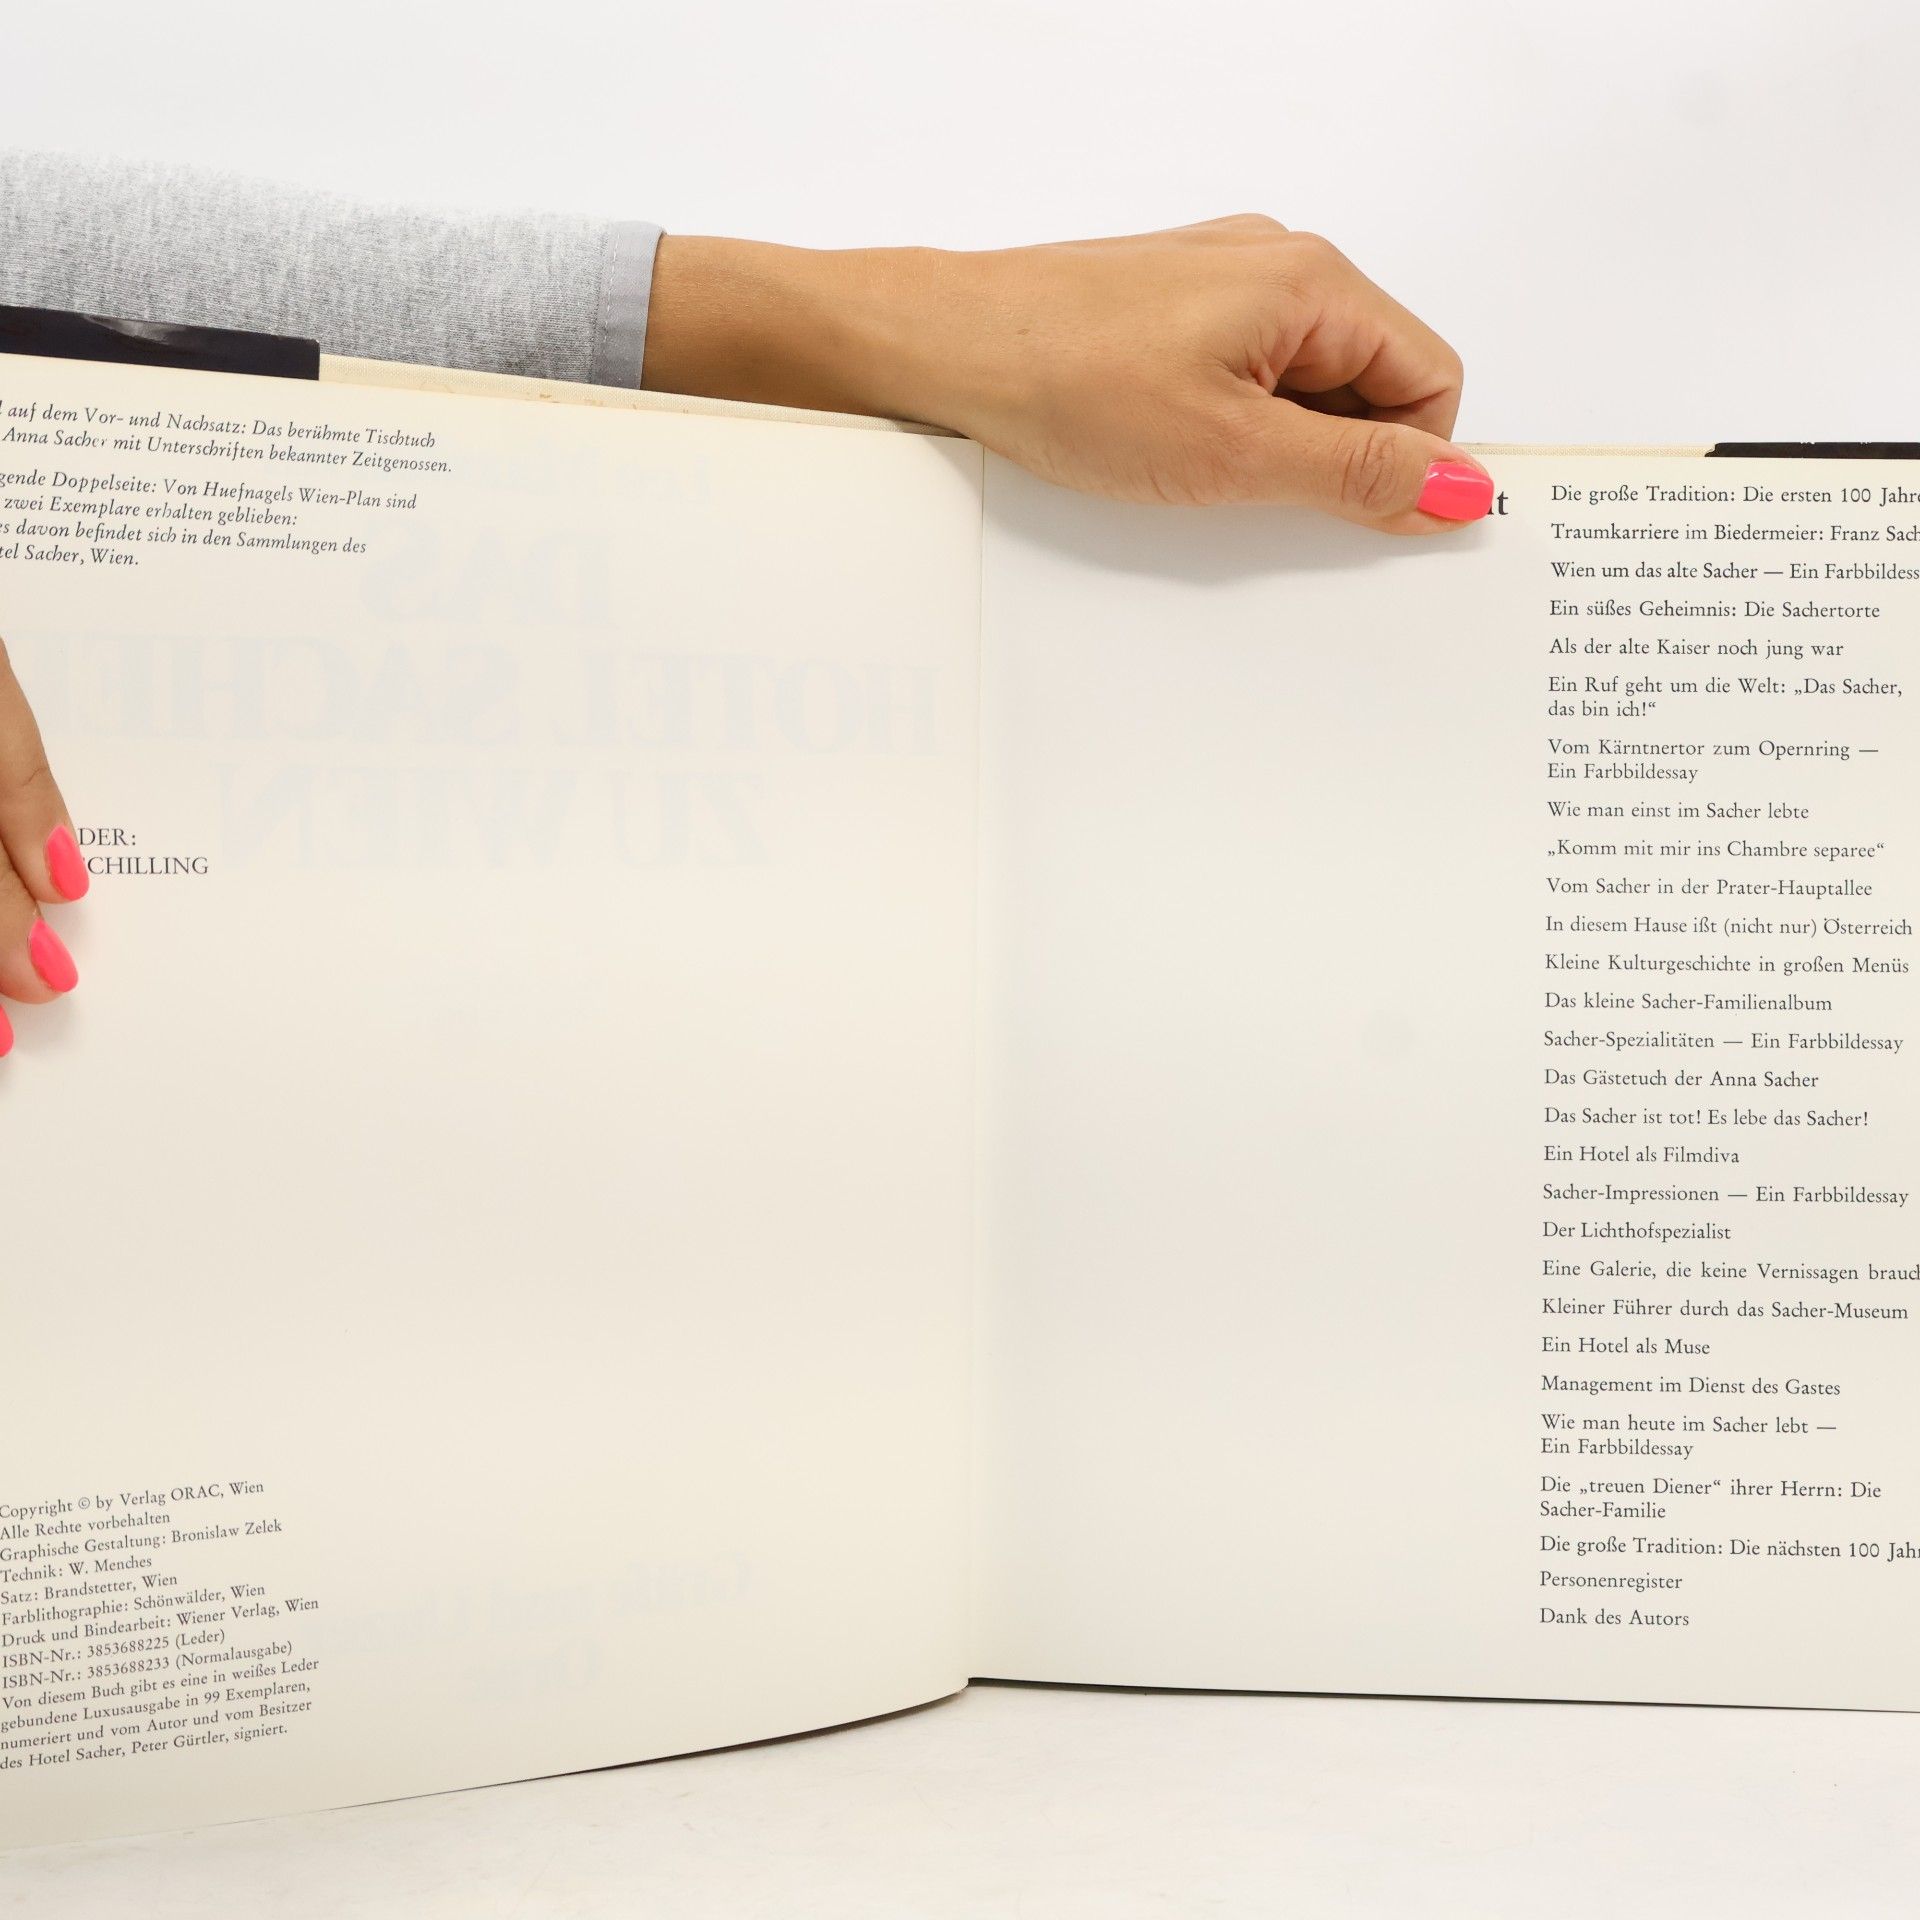 auf dem Vor- und Nachsatz: Das berühmte Tischtuch
Anna Sacher mit Unterschriften bekannter Zeitgenossen.
Doppelseite: Von Huefnagels Wien-Plan sind
zwei Exemplare erhalten geblieben:
davon befindet sich in den Sammlungen des
Sacher, Wien.
DAS
HOTEL SACHER
ZU WIEN
DER:
CHILLING
Copyright © by Verlag ORAC, Wien
Alle Rechte vorbehalten
Graphische Gestaltung: Bronislaw Zelek
Technik: W. Menches
Satz: Brandstetter, Wien
Farblithographie: Schönwälder, Wien
Druck und Bindearbeit: Wiener Verlag, Wien
ISBN-Nr.: 3853688225 (Leder)
ISBN-Nr.: 3853688233 (Normalausgabe)
Von diesem Buch gibt es eine in weißes Leder
gebundene Luxusausgabe in 99 Exemplaren,
numeriert und vom Autor und vom Besitzer
des Hotel Sacher, Peter Gürtler, signiert.
Die große Tradition: Die ersten 100 Jahre
Traumkarriere im Biedermeier: Franz Sach
Wien um das alte Sacher — Ein Farbbildess
Ein süßes Geheimnis: Die Sachertorte
Als der alte Kaiser noch jung war
Ein Ruf geht um die Welt: „Das Sacher,
das bin ich!“
Vom Kärntnertor zum Opernring —
Ein Farbbildessay
Wie man einst im Sacher lebte
„Komm mit mir ins Chambre separee“
Vom Sacher in der Prater-Hauptallee
In diesem Hause ißt (nicht nur) Österreich
Kleine Kulturgeschichte in großen Menüs
Das kleine Sacher-Familienalbum
Sacher-Spezialitäten — Ein Farbbildessay
Das Gästetuch der Anna Sacher
Das Sacher ist tot! Es lebe das Sacher!
Ein Hotel als Filmdiva
Sacher-Impressionen — Ein Farbbildessay
Der Lichthofspezialist
Eine Galerie, die keine Vernissagen brauch
Kleiner Führer durch das Sacher-Museum
Ein Hotel als Muse
Management im Dienst des Gastes
Wie man heute im Sacher lebt —
Ein Farbbildessay
Die „treuen Diener“ ihrer Herrn: Die
Sacher-Familie
Die große Tradition: Die nächsten 100 Jah
Personenregister
Dank des Autors